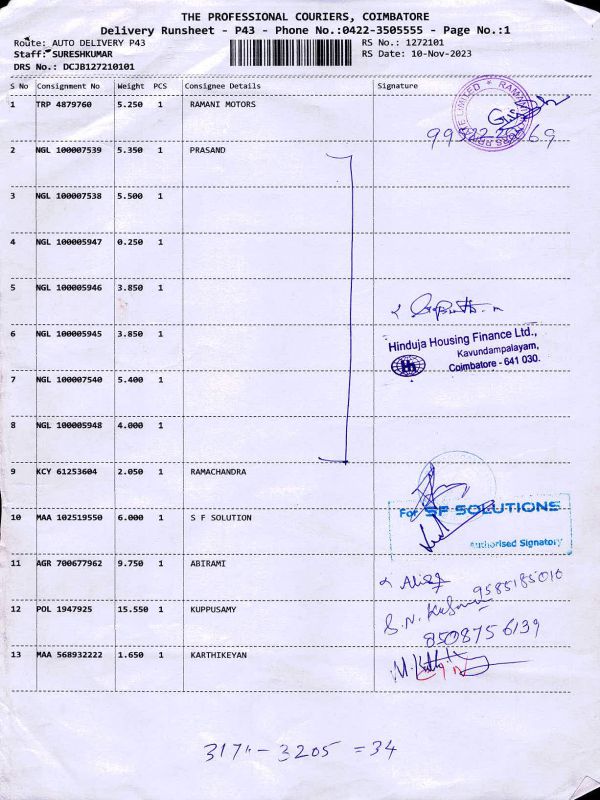 THE PROFESSIONAL COURIERS, COIMBATORE
Delivery Runsheet - P43 - Phone No.:0422-3505555 - Page No.:1
Route: AUTO DELIVERY P43
RS No.: 1272101
Staff: SURESHKUMAR
RS Date: 10-Nov-2023
DRS No.: DCJB127210101
S No Consignment No Weight PCS Consignee Details Signature
1 TRP 4879760 5.250 1 RAMANI MOTORS
2 NGL 100007539 5.350 1 PRASAND
3 NGL 100007538 5.500 1
4 NGL 100005947 0.250 1
5 NGL 100005946 3.850 1
6 NGL 100005945 3.850 1
Hinduja Housing Finance Ltd.,
Kavundampalayam,
Coimbatore - 641 030.
7 NGL 100007540 5.400 1
8 NGL 100005948 4.000 1
9 KCY 61253604 2.050 1 RAMACHANDRA
10 MAA 102519550 6.000 1 S F SOLUTION
For SF SOLUTIONS
Authorised Signatory
11 AGR 700677962 9.750 1 ABIRAMI
9585185010
12 POL 1947925 15.550 1 KUPPUSAMY
8508756139
13 MAA 568932222 1.650 1 KARTHIKEYAN
3171 - 3205 = 34